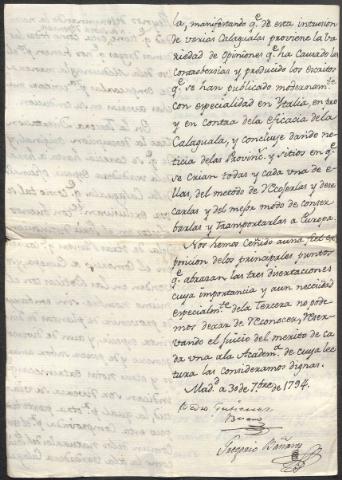 la, manifestando qe. de esta intrusion
de varias Calagualas proviene la va
riedad de Opiniones qe. ha Causado las
Controversias y producido los escritos
qe. se han publicado modernamte.
con especialidad en Ytalia, en pro
y en contra de la eficacia de la
Calaguala, y concluye dando no
ticia de las Provincs. y sitios en qe.
se Crian todas y cada una de e
llas, del metodo de Recogerlas y dese
carlas y del mejor modo de conser
barlas y Transportarlas a Europa.
Nos hemos Ceñido a una
posicion de los principales puntos
qe. abrazan las tres disertaciones
cuya importancia y aun necesidad
especialmte. de la Tercera no pode
mos dexar de Reconocer, Reser
vando el juicio del merito de ca
da una a la Academa. de cuya lec
tura las consideramos dignas.
Madd. a 30 de 7bre. de 1794.
Pedro Gutierrez
Bueno
Gregorio Bañares